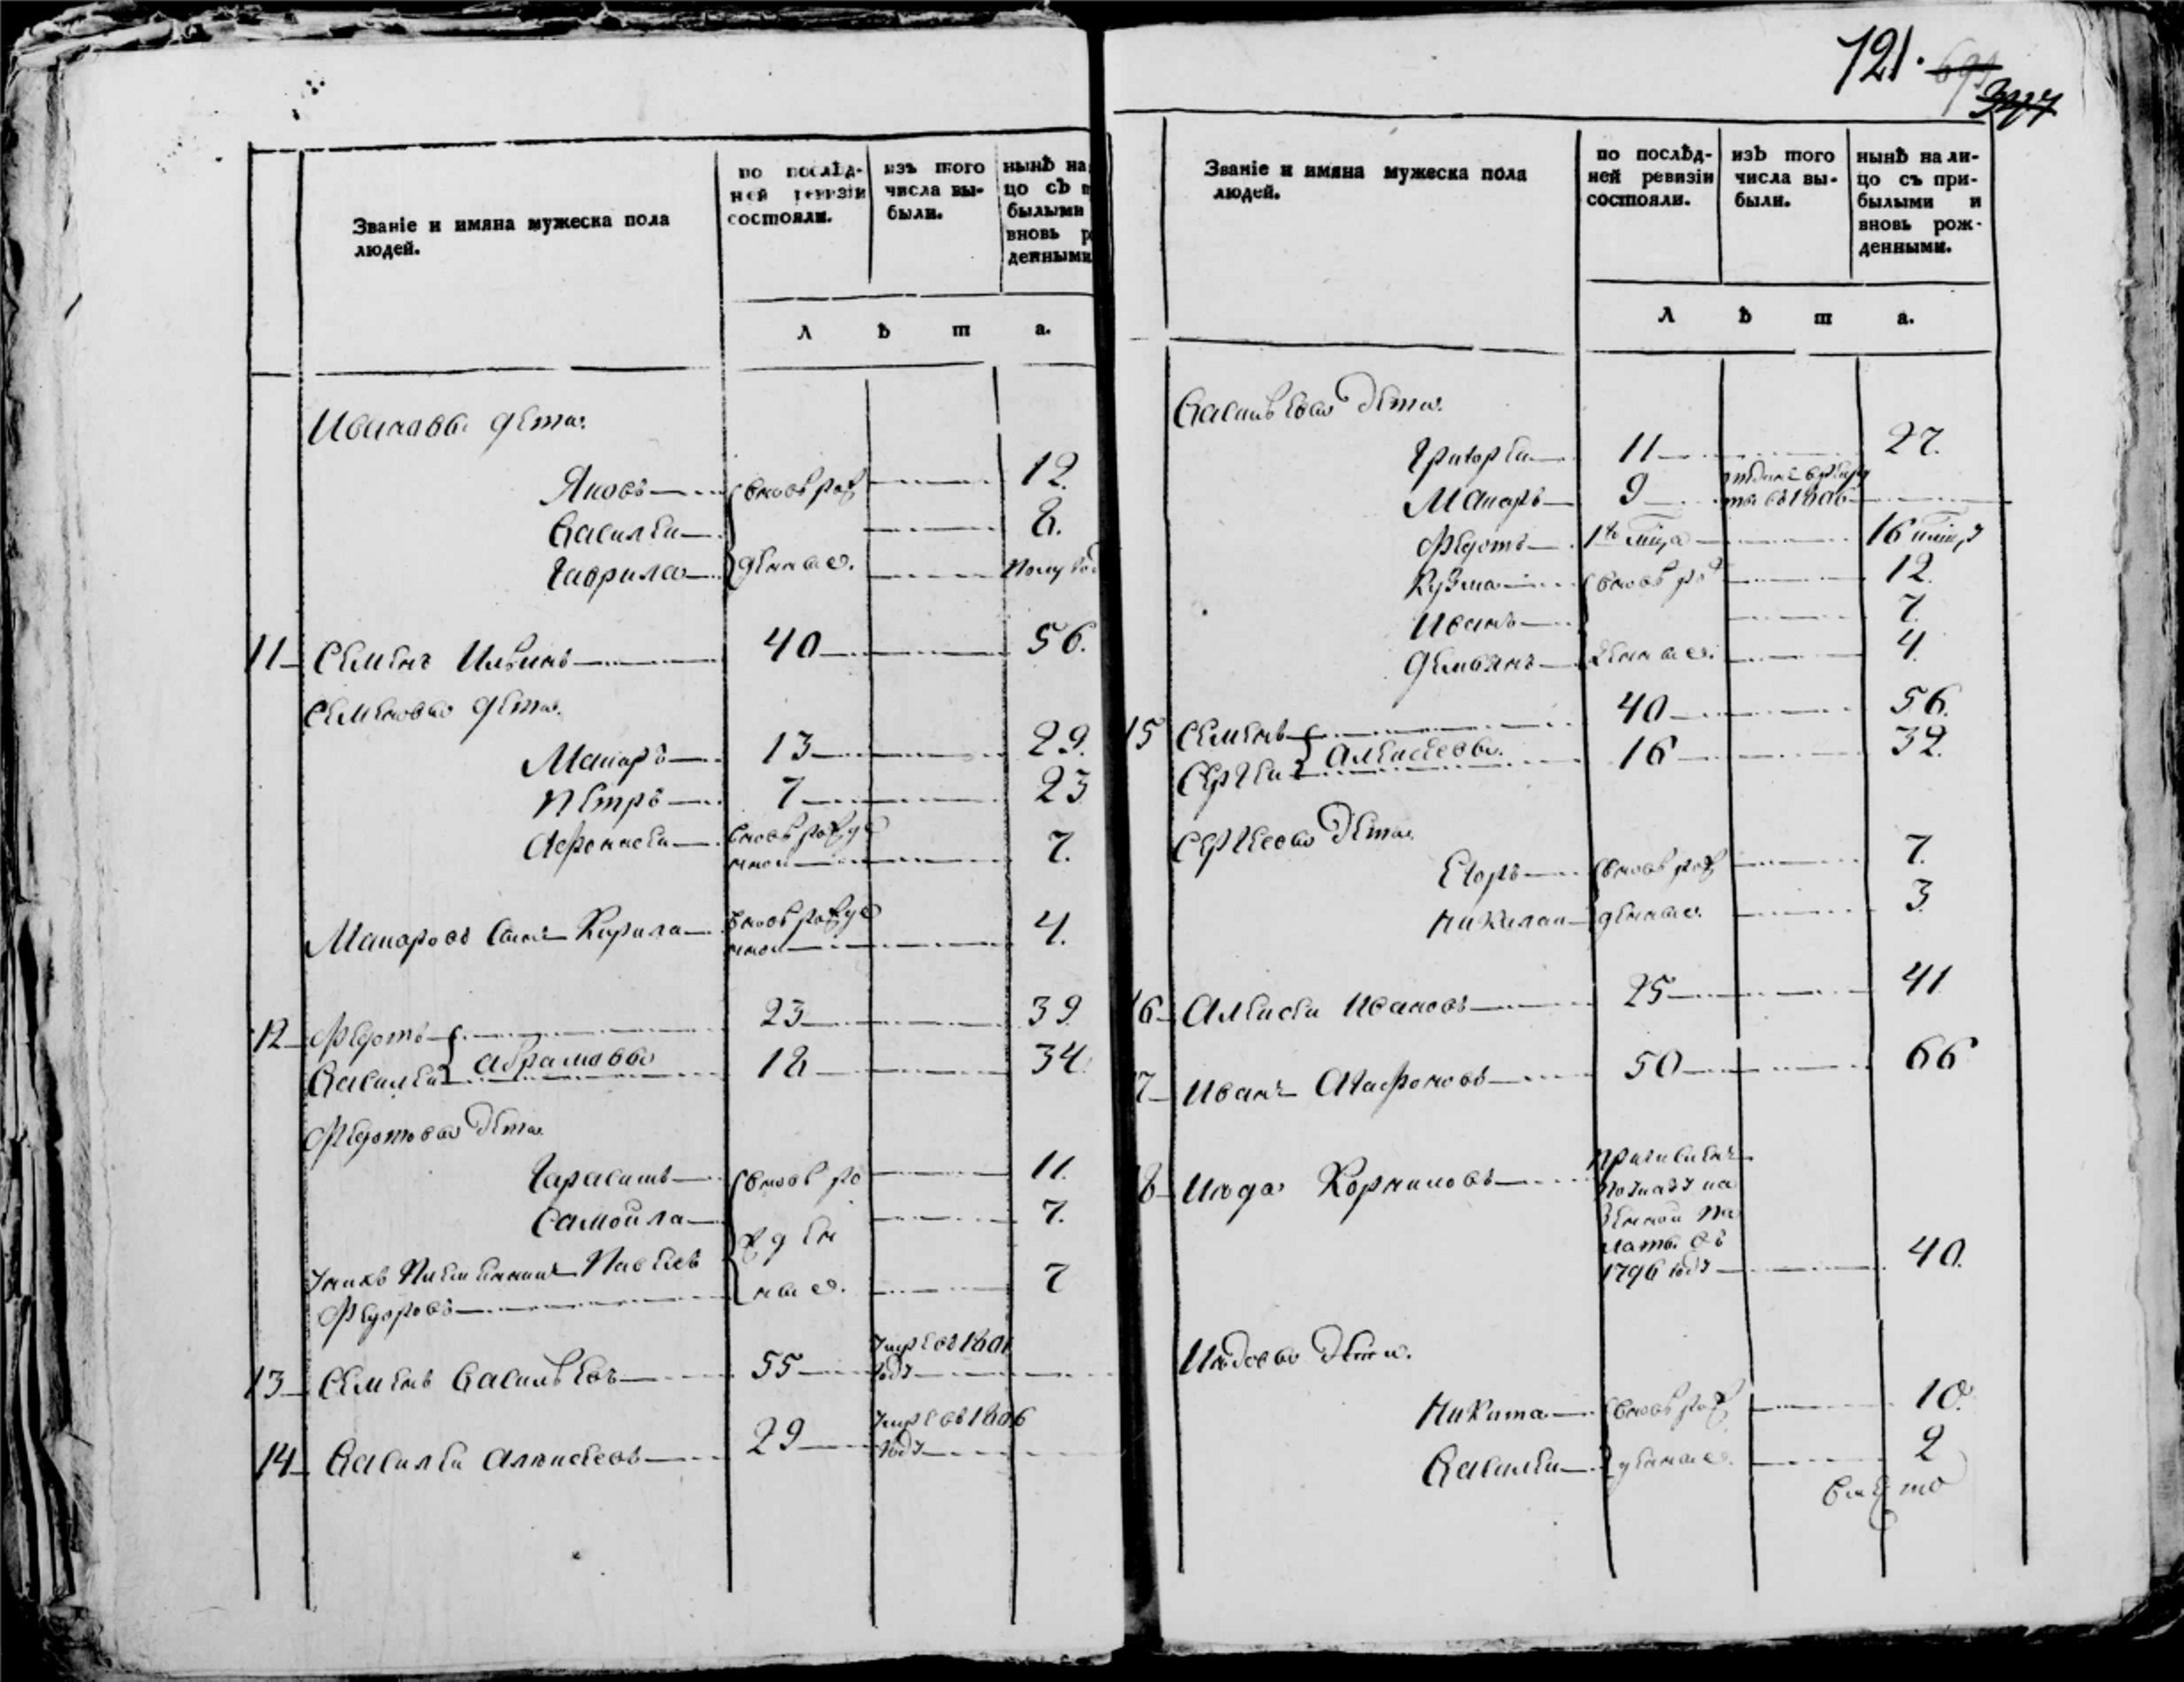 Званіе и имяна мужеска пола
людей.
по послѣд-
ней ревизіи
состояли.
изъ того
числа вы-
были.
нынѣ на
цо съ п
былыми
вновь р
денными
л ѣ т а.
Ивановы дети
Яковъ вновь рож 12.
Василей 8.
Гаврила денные. полугод
11 Семенъ Ильинъ 40 56.
Семеновы дети
Макаръ 13 29.
Петръ 7 23
Афонасей вновь рожде
нной 7.
Макаровъ сынъ Кирила вновь рожде
нной 4.
12 Федотъ 23 39
Василей Абрамовы 18 34
Федотовы дети
Гарасимъ вновь ро 11.
Самойла жден 7.
Унихъ племянникъ Павелъ
Федоровъ ные. 7
13 Семенъ Васильевъ 55 умре въ 1801
году
14 Василей Алексеевъ 29 умре въ 1806
году
121. 691
377
Званіе и имяна мужеска пола
людей.
по послѣд-
ней ревизіи
состояли.
изъ того
числа вы-
были.
нынѣ на ли-
цо съ при-
былыми и
вновь рож-
денными.
л ѣ т а.
Васильевы дети
Григорей 11 27.
Макаръ 9 отданъ в рекру
ты въ 1806
Федотъ 1го мца 16
Кузма вновь рож 12.
Иванъ 7.
Демьянъ денные. 4.
15 Семенъ 40 56.
Сергей Алексеевы. 16 32.
Сергеевы дети
Егоръ вновь рож 7.
Николай денные. 3.
16 Алексей Ивановъ 25 41
17 Иванъ Агафоновъ 50 66
18 Июда Корниловъ причисленъ
по указу ка
зенной па
латы въ
1796 году 40.
Июдовы дети.
Никита вновь рож 10.
Василей денные. 2
вместо